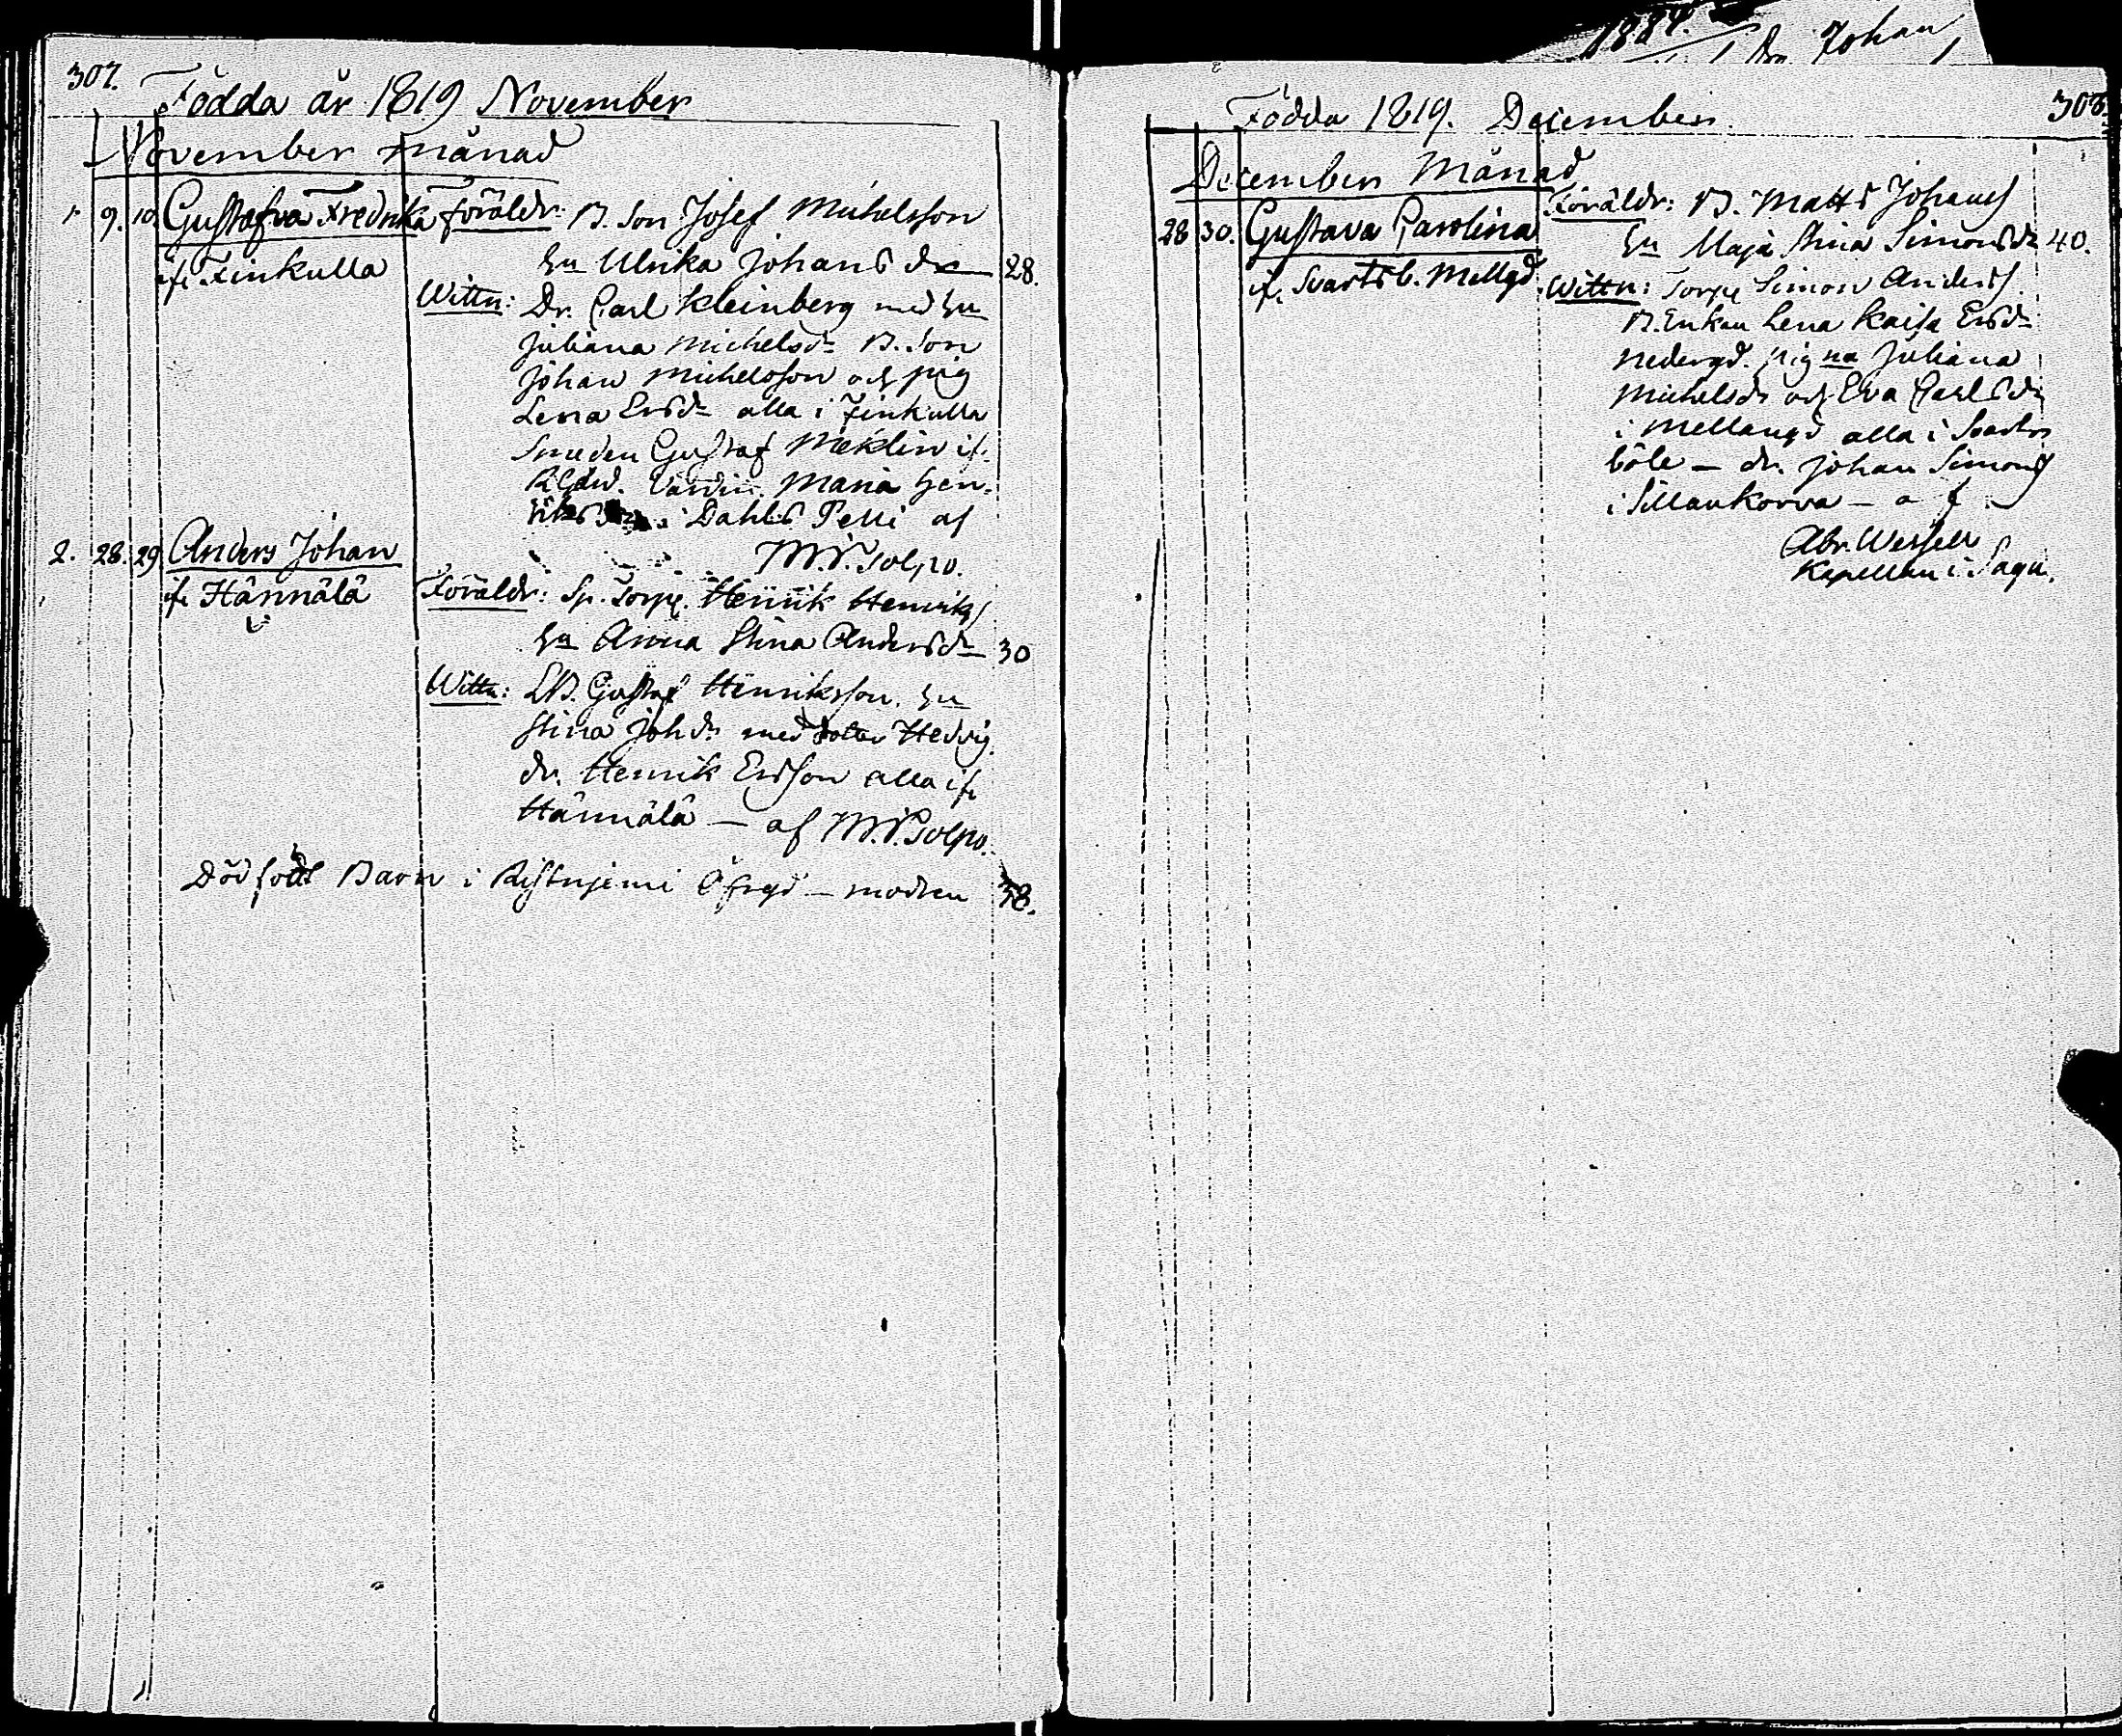 1884.
Dr. Johan
307.
Födda år 1819 November
November månad
1. 9. 10. Gustafva Fredrika Föräldr: B. Son Josef Michelsson
if. Finkulla hu Ulrika Johans dr 28.
Wittn: Dr. Carl Kleinberg med hu
Juliana Michelsdr B. Son
Johan Michelsson och pig
Lena Ersdr alla i Finkulla
Smeden Gustaf Meklin if.
Värdin. Maria Hen-
i Dahls Pelli af
M. P. Solpo.
2. 28. 29 Anders Johan
if Hännälä Föräldr: Sp. Torp. Henrik Henriks
hu Anna Stina Andersdr 30
Wittn: LB. Gustaf Henriksson. hu
Stina Johdr med dotter Hedvig.
dr. Henrik Ersson alla if
Hännälä — af M. P. Solpo.
Död född Barn i Ristniemi Öfrgd — modren 38.
308.
Födda 1819. December.
December Månad
28 30. Gustava Carolina Föräldr: B. Matts Johans
if. Svartsb. Mellgd. hu Maja Stina Simonsdr 40.
Wittn: Torp Simon Anders
B. Enkan Lena Kaisa Ersdr
Nedergd. pigna Juliana
Michelsdr och Eva Carlsdr
i Mellangd alla i Svarts
böle — dr. Johan Simons
i Sillankorva — a f
Abr. Wessell
Kapellan i Sagu.